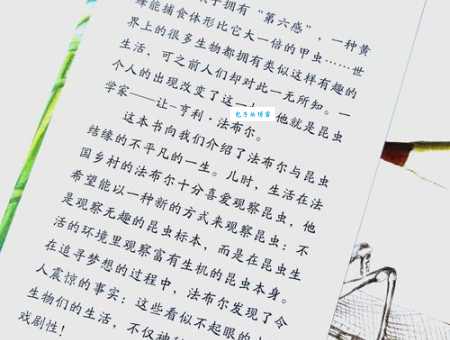 拥有“第六感”，一种黄
蜂能捕食体形比它大一倍的甲虫……世
界上的很多生物都拥有类似这样有趣的
生活，可之前人们却对此一无所知。一
个人的出现改变了这一 他就是昆虫
学家——让-亨利·法布尔。
这本书向我们介绍了法布尔与昆虫
结缘的不平凡的一生。儿时，生活在法
国乡村的法布尔十分喜爱观察昆虫，他
希望能以一种新的方式来观察昆虫：不
是观察无趣的昆虫标本，而是在昆虫生
活的环境里观察富有生机的昆虫本身。
在追寻梦想的过程中，法布尔发现了令
人震惊的事实：这些看似不起眼的
生物们的生活，不仅神
戏剧性！